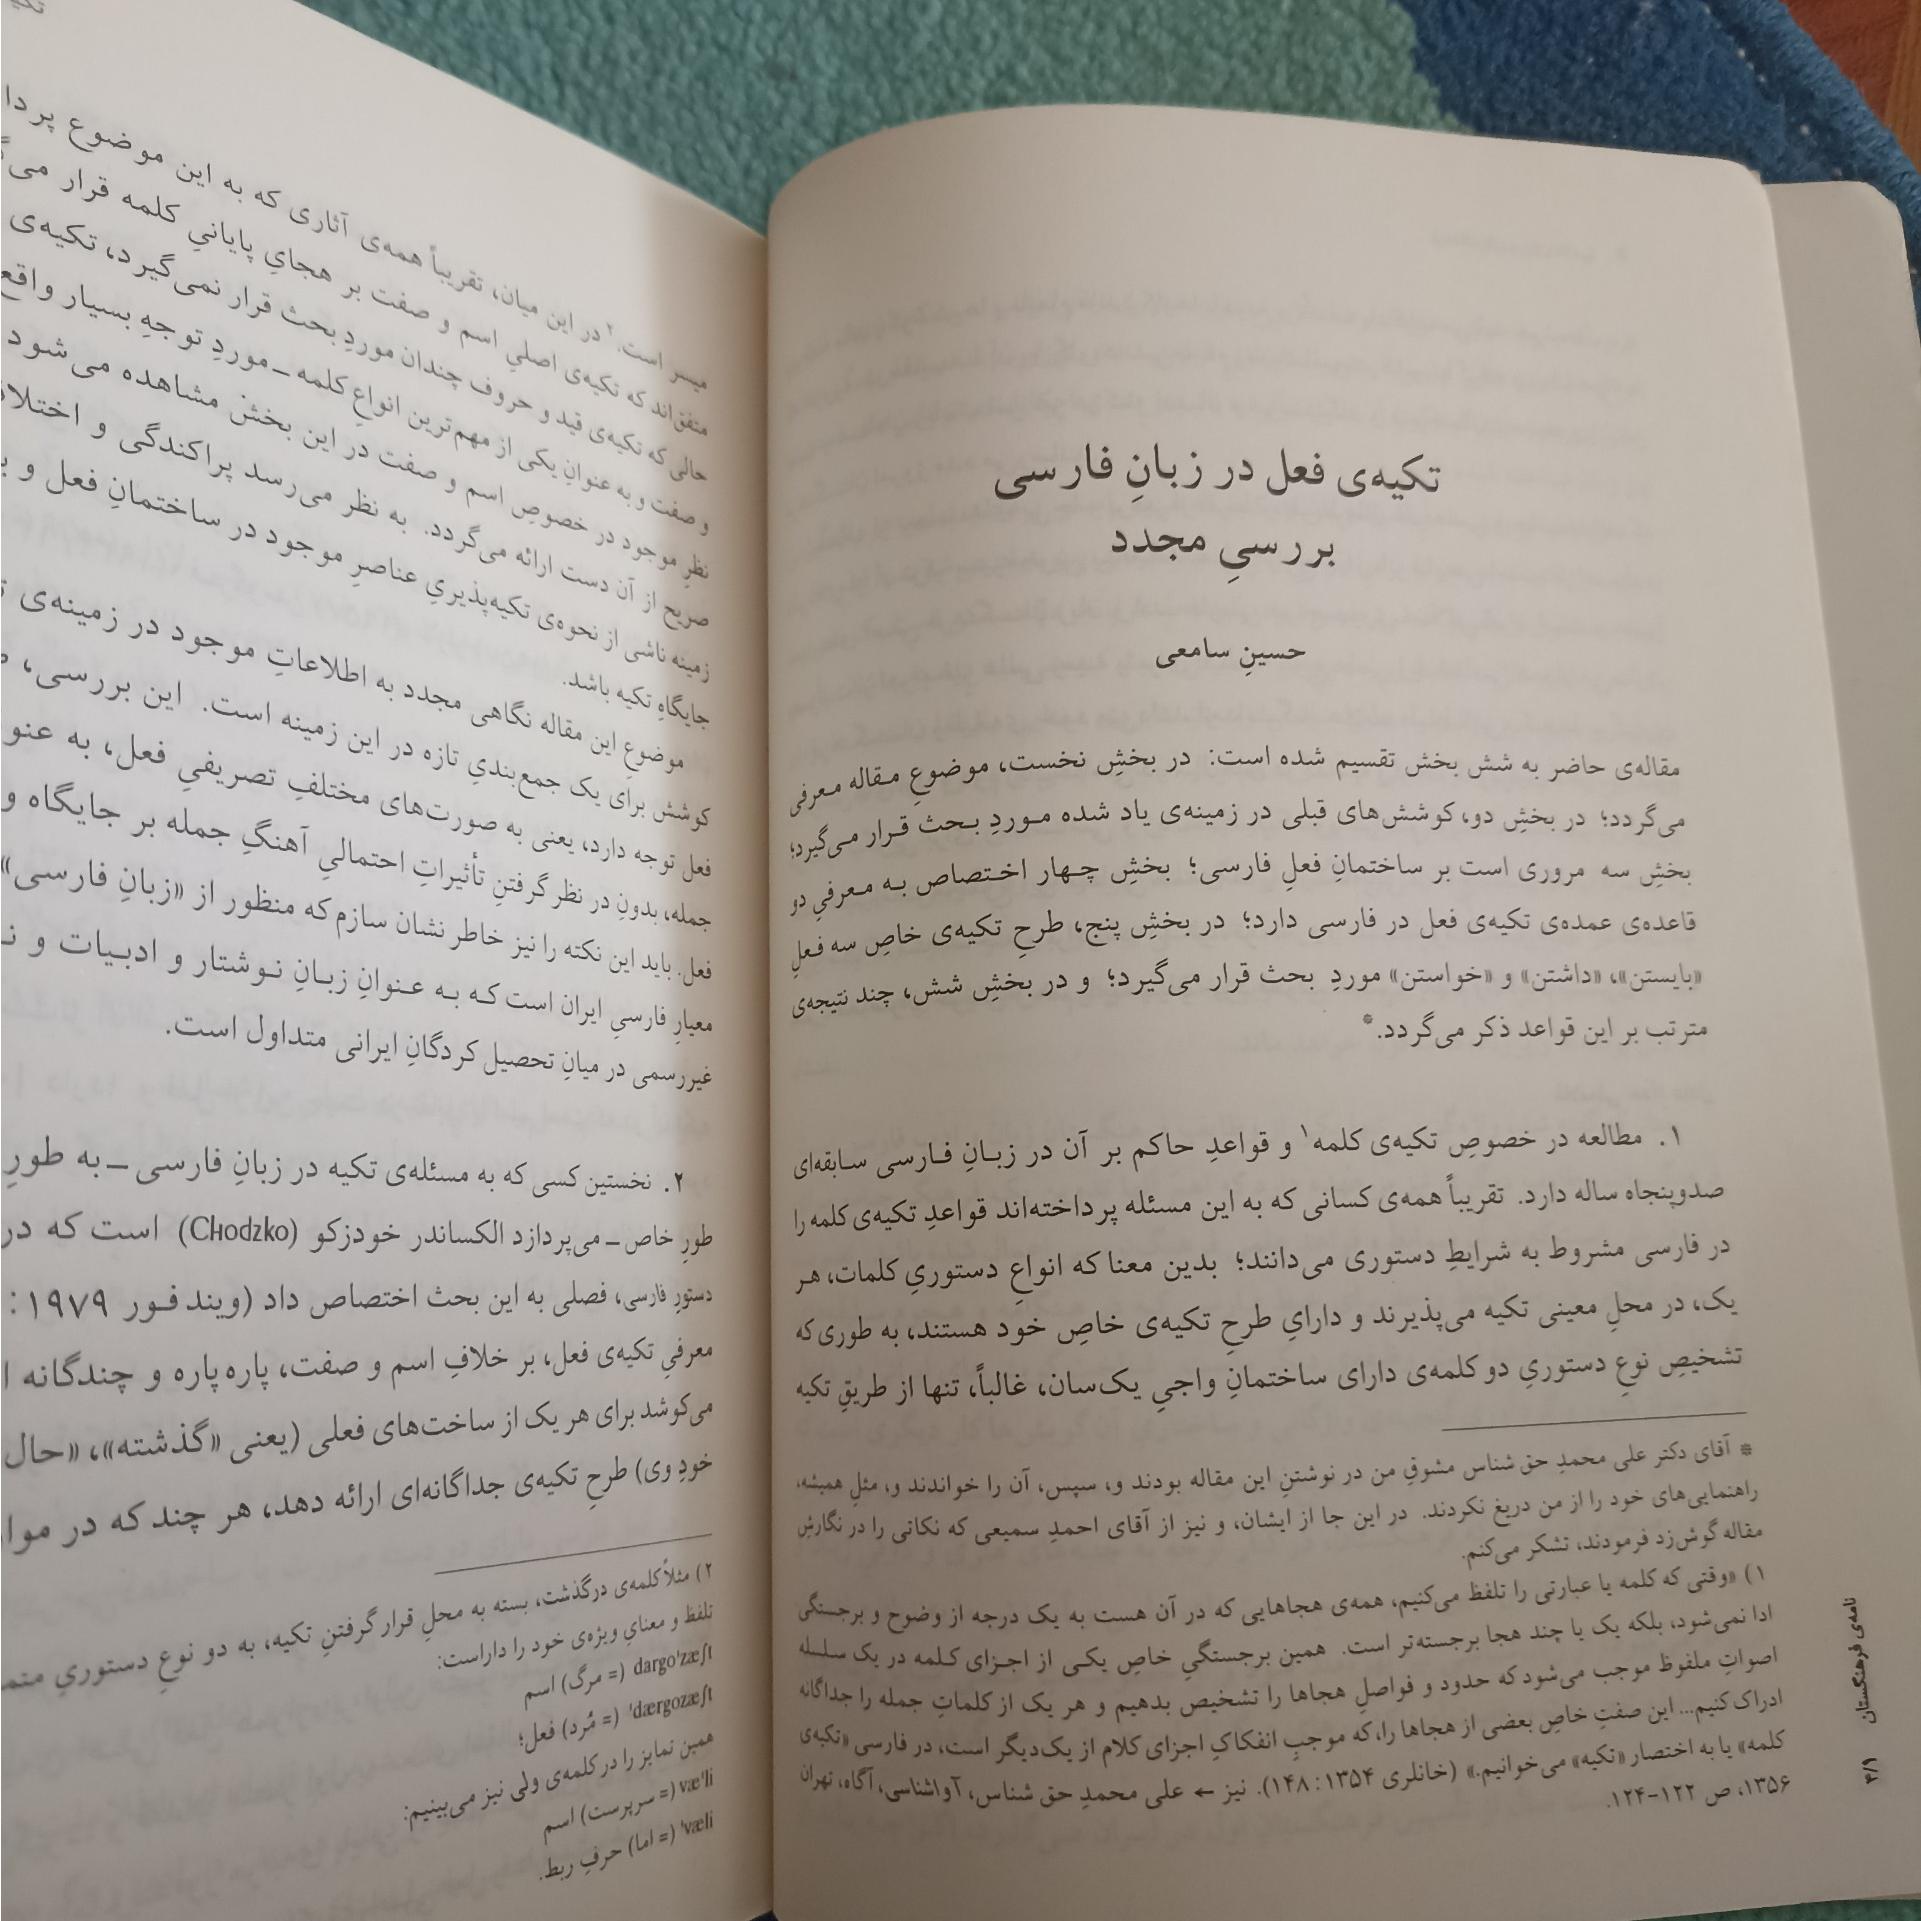 تکیه‌ی فعل در زبانِ فارسی
بررسیِ مجدد
حسینِ سامعی
مقاله‌ی حاضر به شش بخش تقسیم شده است: در بخشِ نخست، موضوعِ مقاله معرفی
می‌گردد؛ در بخشِ دو، کوشش‌های قبلی در زمینه‌ی یاد شده موردِ بحث قرار می‌گیرد؛
بخشِ سه مروری است بر ساختمانِ فعلِ فارسی؛ بخشِ چهار اختصاص به معرفیِ دو
قاعده‌ی عمده‌ی تکیه‌ی فعل در فارسی دارد؛ در بخشِ پنج، طرحِ تکیه‌ی خاصِ سه فعلِ
«بایستن»، «داشتن» و «خواستن» موردِ بحث قرار می‌گیرد؛ و در بخشِ شش، چند نتیجه‌ی
مترتب بر این قواعد ذکر می‌گردد.*
۱. مطالعه در خصوصِ تکیه‌ی کلمه۱ و قواعدِ حاکم بر آن در زبانِ فارسی سابقه‌ای
صدوپنجاه ساله دارد. تقریباً همه‌ی کسانی که به این مسئله پرداخته‌اند قواعدِ تکیه‌ی کلمه را
در فارسی مشروط به شرایطِ دستوری می‌دانند؛ بدین معنا که انواعِ دستوریِ کلمات، هر
یک، در محلِ معینی تکیه می‌پذیرند و دارایِ طرحِ تکیه‌ی خاصِ خود هستند، به طوری که
تشخیصِ نوعِ دستوریِ دو کلمه‌ی دارای ساختمانِ واجیِ یک‌سان، غالباً، تنها از طریقِ تکیه
* آقای دکتر علی محمدِ حق شناس مشوقِ من در نوشتنِ این مقاله بودند و، سپس، آن را خواندند و، مثلِ همیشه،
راهنمایی‌های خود را از من دریغ نکردند. در این جا از ایشان، و نیز از آقای احمدِ سمیعی که نکاتی را در نگارشِ
مقاله گوش‌زد فرمودند، تشکر می‌کنم.
۱) «وقتی که کلمه یا عبارتی را تلفظ می‌کنیم، همه‌ی هجاهایی که در آن هست به یک درجه از وضوح و برجستگی
ادا نمی‌شود، بلکه یک یا چند هجا برجسته‌تر است. همین برجستگیِ خاصِ یکی از اجزای کلمه در یک سلسله
اصواتِ ملفوظ موجب می‌شود که حدود و فواصلِ هجاها را تشخیص بدهیم و هر یک از کلماتِ جمله را جداگانه
ادراک کنیم... این صفتِ خاصِ بعضی از هجاها را، که موجبِ انفکاکِ اجزای کلام از یک‌دیگر است، در فارسی «تکیه‌ی
کلمه» یا به اختصار «تکیه» می‌خوانیم.» (خانلری ۱۳۵۴: ۱۴۸). نیز ← علی محمدِ حق شناس، آواشناسی، آگاه، تهران
۱۳۵۶، ص ۱۲۲-۱۲۴.
نامه‌ی فرهنگستان ۴/۱
میسر است.۲ در این میان، تقریباً همه‌ی آثاری که به این موضوع
متفق‌اند که تکیه‌ی اصلیِ اسم و صفت بر هجایِ پایانیِ کلمه قرار
حالی که تکیه‌ی قید و حروف چندان موردِ بحث قرار نمی‌گیرد، تکیه‌ی
و صفت و به عنوانِ یکی از مهم‌ترین انواعِ کلمه ــ موردِ توجهِ بسیار
نظرِ موجود در خصوصِ اسم و صفت در این بخش مشاهده می‌شود
صریح از آن دست ارائه می‌گردد. به نظر می‌رسد پراکندگی و
زمینه ناشی از نحوه‌ی تکیه‌پذیریِ عناصرِ موجود در ساختمانِ فعل و
جایگاهِ تکیه باشد.
موضوعِ این مقاله نگاهی مجدد به اطلاعاتِ موجود در زمینه‌ی
کوشش برای یک جمع‌بندیِ تازه در این زمینه است. این بررسی،
فعل توجه دارد، یعنی به صورت‌های مختلفِ تصریفیِ فعل، به
جمله، بدونِ در نظر گرفتنِ تأثیراتِ احتمالیِ آهنگِ جمله بر جایگاه و
فعل. باید این نکته را نیز خاطر نشان سازم که منظور از «زبانِ فارسی»
معیارِ فارسیِ ایران است که به عنوانِ زبانِ نوشتار و ادبیات و
غیررسمی در میانِ تحصیل کردگانِ ایرانی متداول است.
۲. نخستین کسی که به مسئله‌ی تکیه در زبانِ فارسی ــ به طورِ
طورِ خاص ــ می‌پردازد الکساندر خودزکو (Chodzko) است که در
دستورِ فارسی، فصلی به این بحث اختصاص داد (ویند فور ۱۹۷۹:
معرفیِ تکیه‌ی فعل، بر خلافِ اسم و صفت، پاره پاره و چندگانه
می‌کوشد برای هر یک از ساخت‌های فعلی (یعنی «گذشته»، «حال
خودِ وی) طرحِ تکیه‌ی جداگانه‌ای ارائه دهد، هر چند که در
۲) مثلاً کلمه‌ی درگذشت، بسته به محلِ قرار گرفتنِ تکیه، به دو نوعِ دستوریِ
تلفظ و معنایِ ویژه‌ی خود را داراست:
dargo'zæʃt (= مرگ) اسم
'dærgozæʃt (= مُرد) فعل؛
همین تمایز را در کلمه‌ی ولی نیز می‌بینیم:
væ'li (= سرپرست) اسم
'væli (= اما) حرفِ ربط.